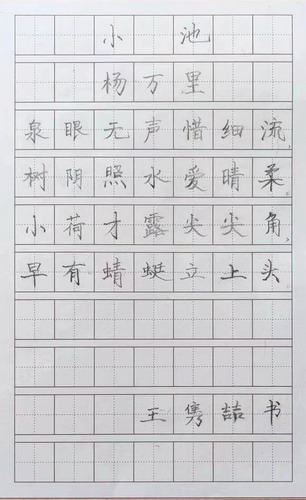 小池
杨万里
泉眼无声惜细流,
树阴照水爱晴柔。
小荷才露尖尖角,
早有蜻蜓立上头
王隽喆书